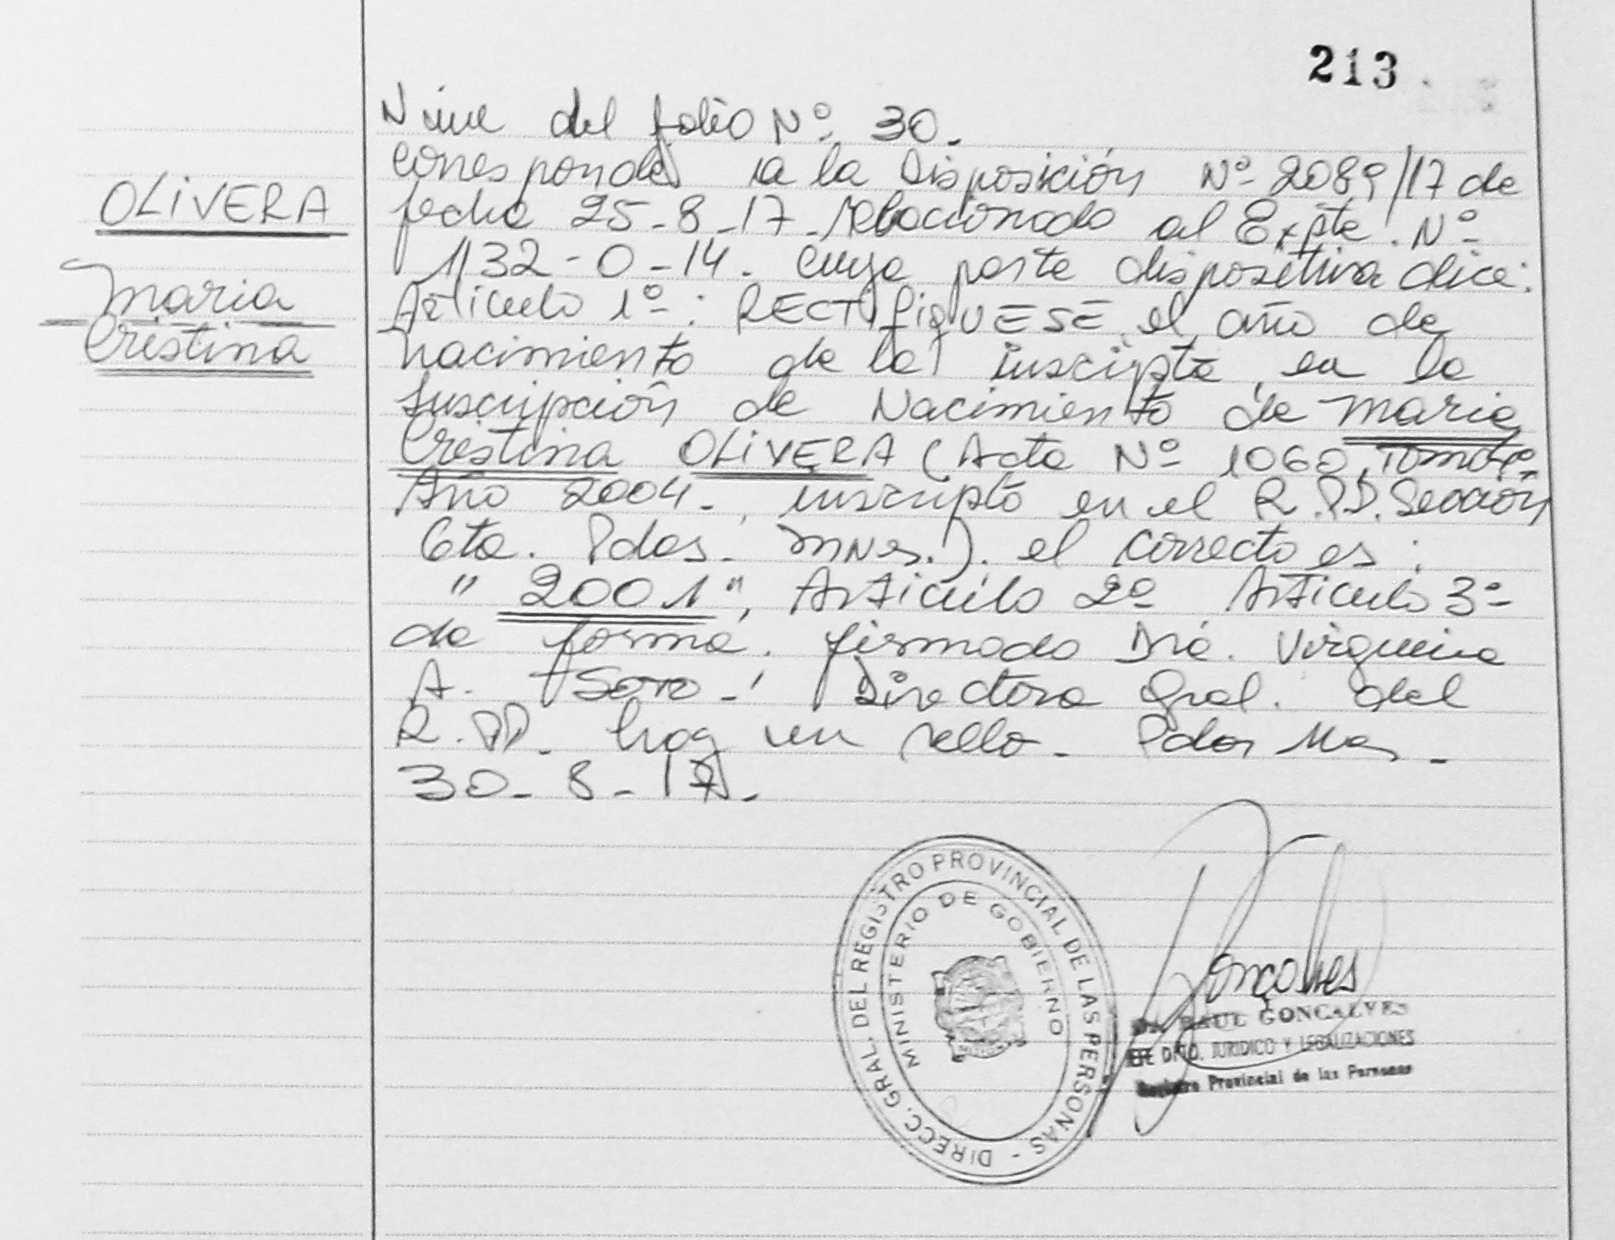 213
OLIVERA
Maria
Cristina
Viene del folio Nº 30.
corresponde a la Disposición Nº 2089/17 de
fecha 25-8-17 relacionado al Expte. Nº
1132-O-14. cuya parte dispositiva dice:
Articulo 1º: RECTIFIQUESE el año de
nacimiento de la inscripta, en la
Inscripción de Nacimiento de Maria
Cristina OLIVERA (Acta Nº 1060, Tomo
Año 2004-, inscripto en el R.P.P. Sección
6ta. Pdas. Mnes.). el correcto es:
"2001", Articulo 2º Articulo 3º
de forma. firmado Dra. Virginia
A. Soto-. Directora Gral. del
R.PP. hay un sello-. Pdas Mes-
30-8-17-.
DIRECC. GRAL. DEL REGISTRO PROVINCIAL DE LAS PERSONAS -
MINISTERIO DE GOBIERNO
Gonçalves
RAUL GONCALVES
JEFE DPTO. JURIDICO Y LEGALIZACIONES
Registro Provincial de las Personas